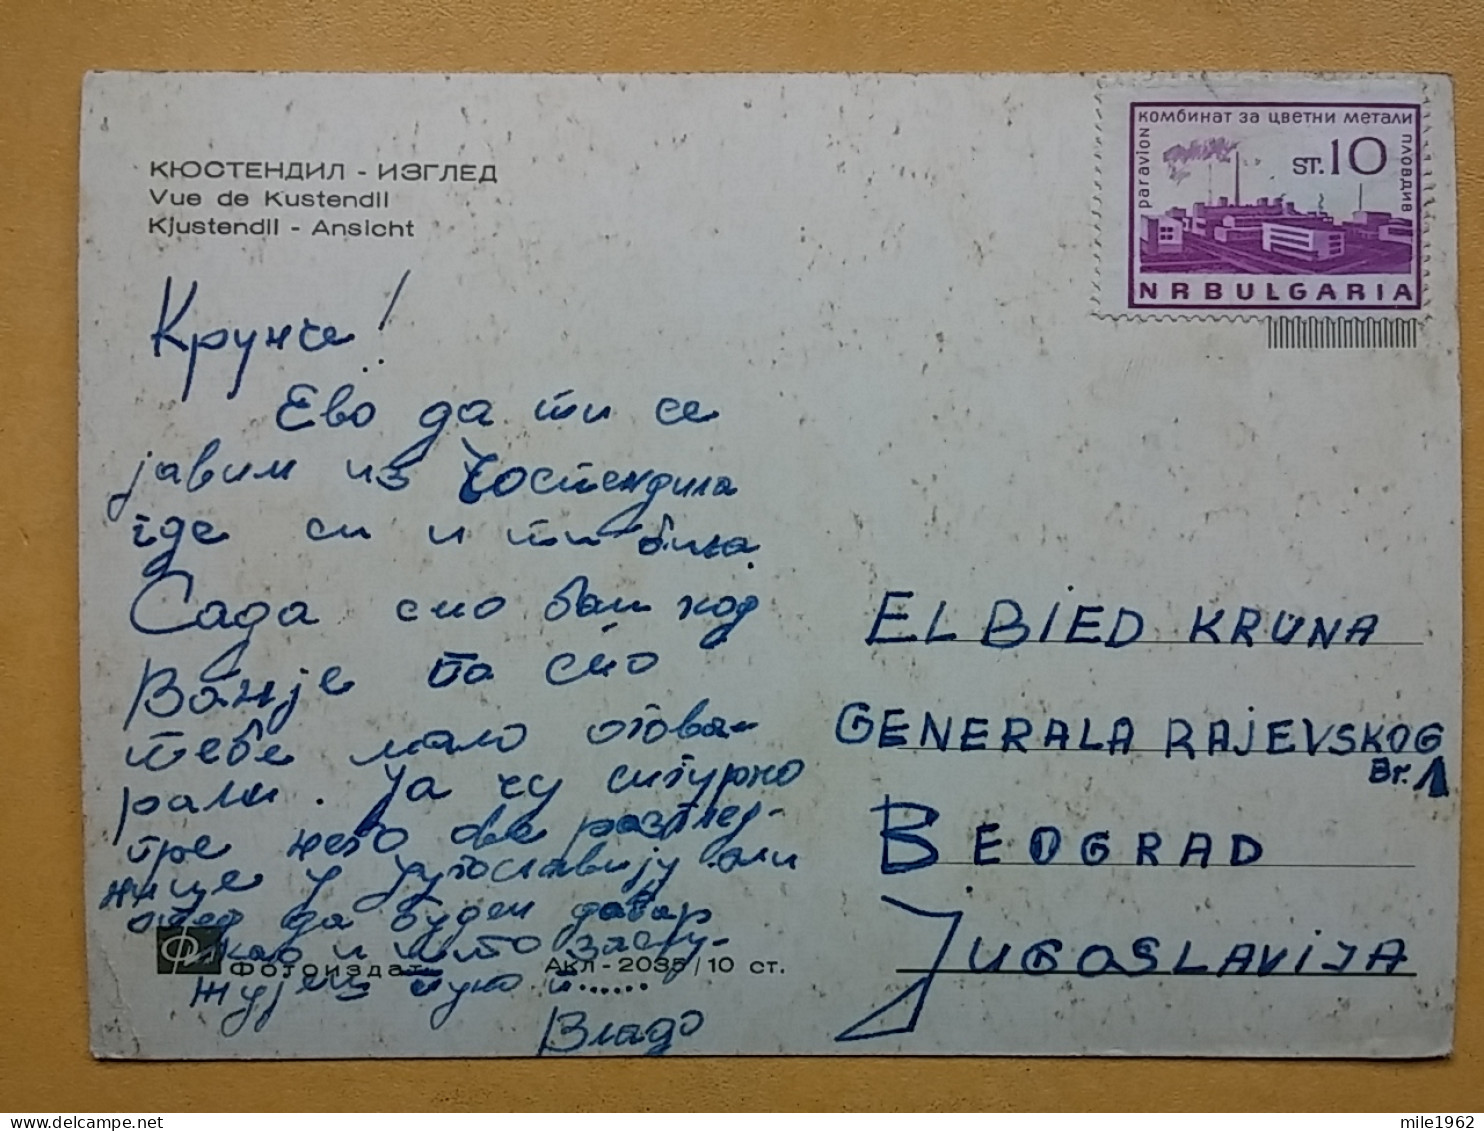 КЮСТЕНДИЛ - ИЗГЛЕД
Vue de Kustendil
Kjustendil - Ansicht
комбинат за цветни метали
paravion
пловдив
ST.10
NRBULGARIA
Крунче!
Ево да ти се
јавим из Ћостендила
где си и ти била.
Сада смо баш код
Вање па смо
тебе мало огова-
рали. Ја ћу сигурно
пре него ове разглед-
нице у Југославију али
да будем добар
као и што заслу-
жујеш пуно и ......
Владо
ФОТОИЗДАТ
АКЛ - 2035/10 СТ.
ELBIED KRUNA
GENERALA RAJEVSKOG
Br. 1
BEOGRAD
JUGOSLAVIJA
mile1962